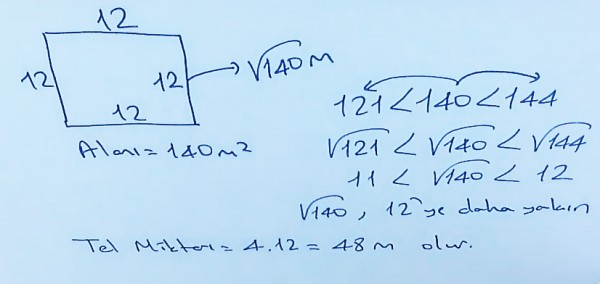 12
12 12 √140 m
12
Alanı = 140 m²
121 < 140 < 144
√121 < √140 < √144
11 < √140 < 12
√140, 12'ye daha yakın
Tel Miktarı = 4.12 = 48 m olur.